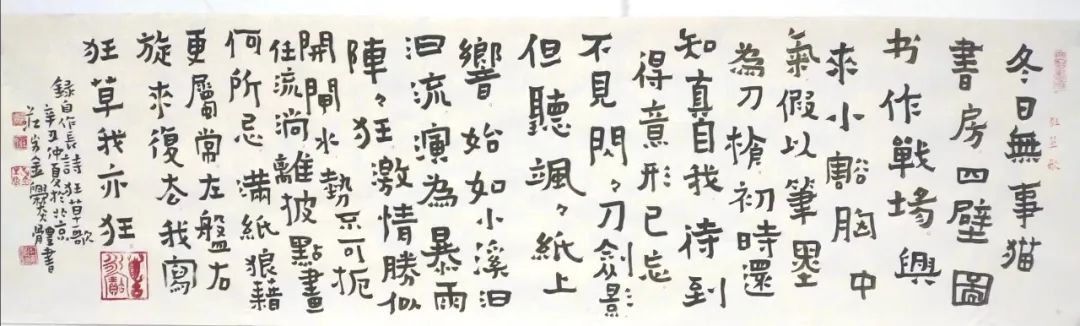 冬日無事猫
書房四壁圖
书作戰場興
来小豁胸中
氣假以筆墨
為刀槍初時還
知真自我待到
得意形已忘
不見閃々刀劍影
但聽颯々紙上
響始如小溪汩
汩流演為暴雨
陣々狂激情勝似
開閘水勢不可扼
任流淌離披點畫
何所忌滿紙狼藉
更屬常左盤右
旋来復去我寫
狂草我亦狂
錄自作長詩狂草歌
辛丑仲夏於北京
體書